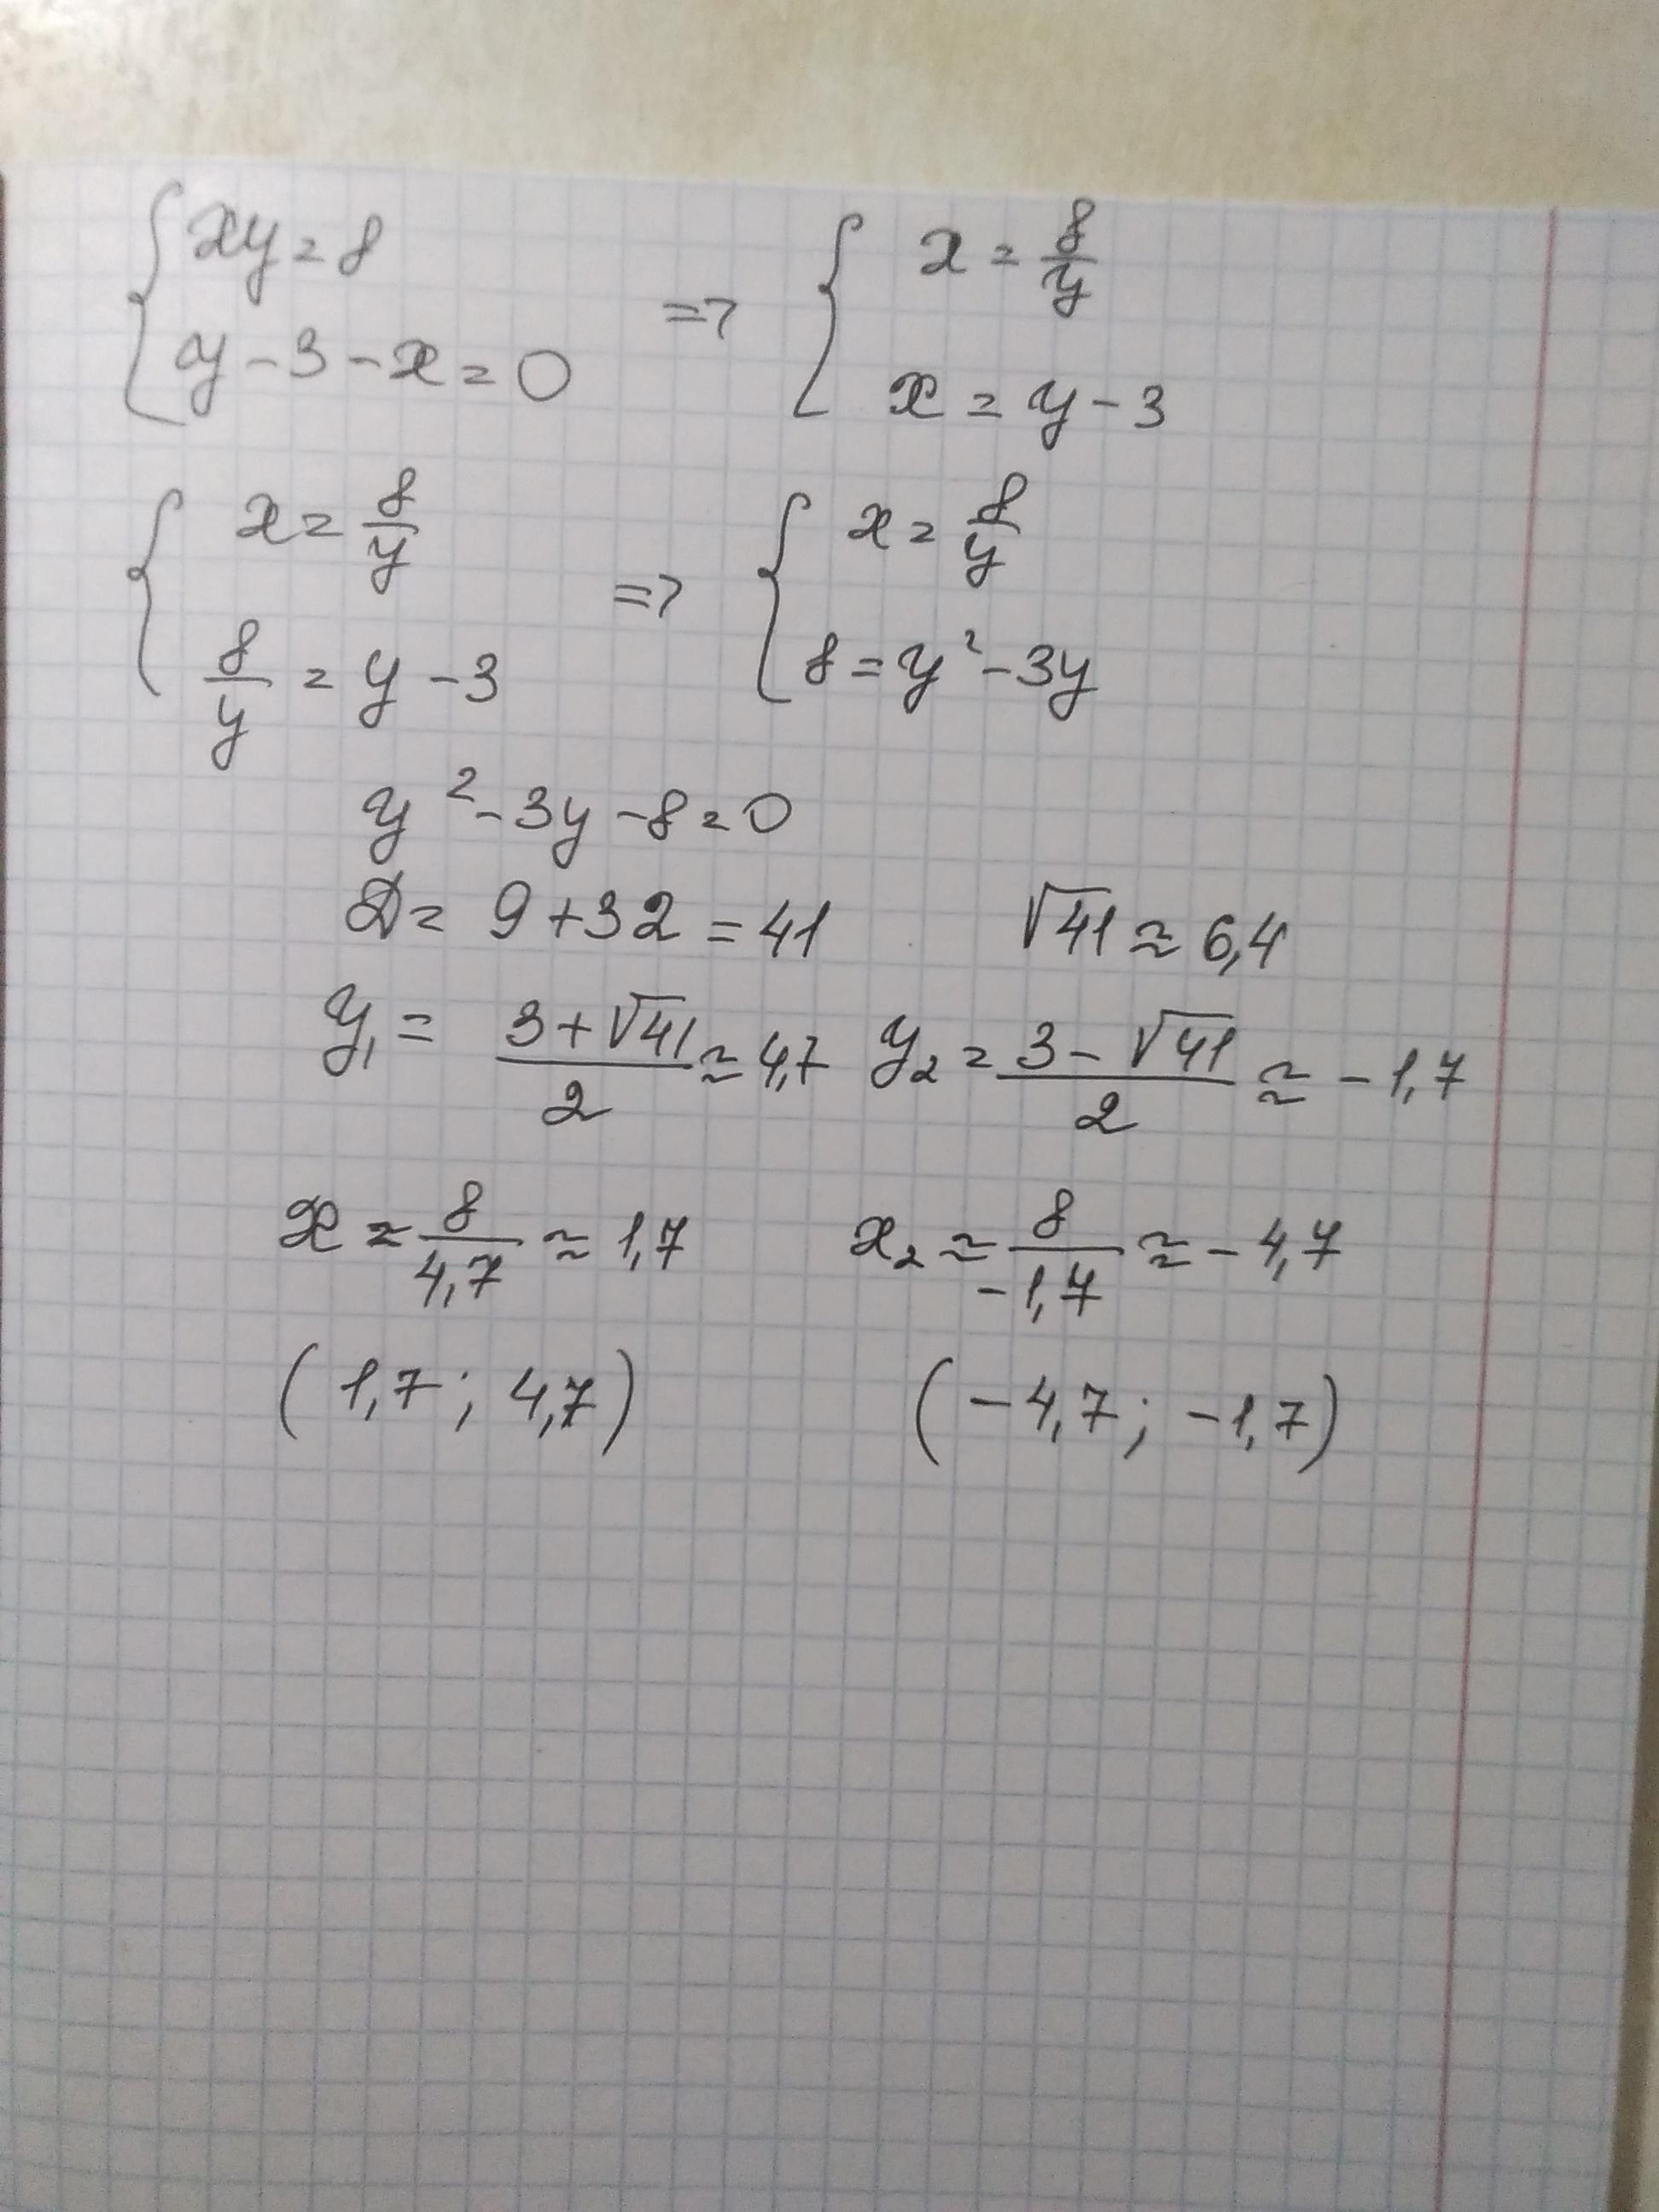 { xy = 8
y - 3 - x = 0 => { x = 8/y
x = y - 3
{ x = 8/y
8/y = y - 3 => { x = 8/y
8 = y² - 3y
y² - 3y - 8 = 0
D = 9 + 32 = 41 √41 ≈ 6,4
y₁ = (3 + √41)/2 ≈ 4,7 y₂ = (3 - √41)/2 ≈ -1,7
x ≈ 8/4,7 ≈ 1,7 x₂ ≈ 8/-1,7 ≈ -4,7
(1,7; 4,7) (-4,7; -1,7)